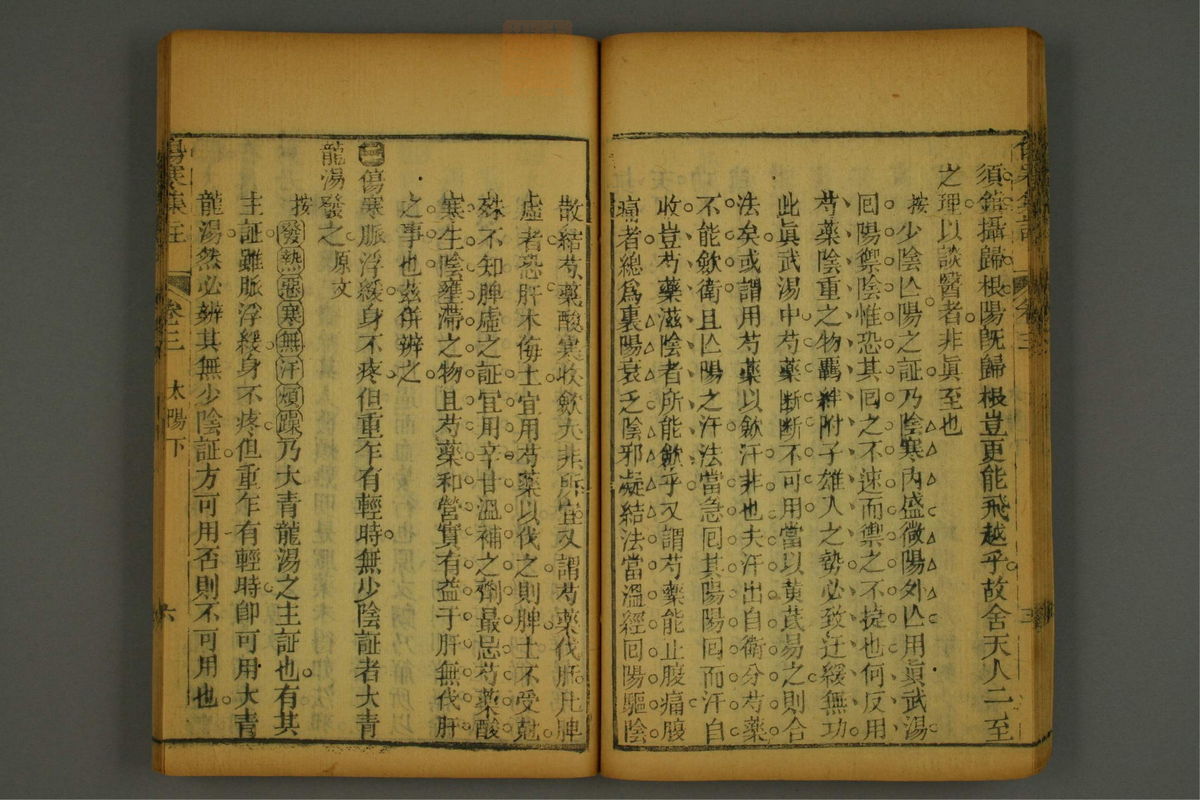 須舘攝歸根陽既歸根豈更能飛越乎故舍天人二至
之理以談醫者非眞至也
按少陰亾陽之証乃陰寒內盛微陽外亾用眞武湯
囘陽禦陰惟恐其囘之不速而禦之不㨗也何反用
芍藥陰重之物羈絆附子雄入之勢必致迂緩無功
此眞武湯中芍藥斷斷不可用當以黄茋易之則合
法矣或謂用芍藥以歛汗非也夫汗出自衛分芍藥
不能歛衛且亾陽之汗法當急囘其陽陽囘而汗自
收豈芍藥滋陰者所能歛乎又謂芍藥能止腹痛腹
痛者總爲裏陽衰乏陰邪凝結法當溫經囘陽驅陰
散結芍藥酸寒收歛大非所宜又謂芍藥伐肝凡脾
虛者恐肝木侮土宜用芍藥以伐之則脾土不受尅
殊不知脾虛之証宜用辛甘溫補之劑最忌芍藥酸
寒生陰壅滯之物且芍藥和營實有益于肝無伐肝
之事也茲併辨之
二傷寒脈浮緩身不疼但重乍有輕時無少陰証者大青
龍湯發之 原文
按發熱惡寒無汗煩躁乃大青龍湯之主証也有其
主証雖脈浮緩身不疼但重乍有輕時卽可用大青
龍湯然必辨其無少陰証方可用否則不可用也
卷三 太陽下 六